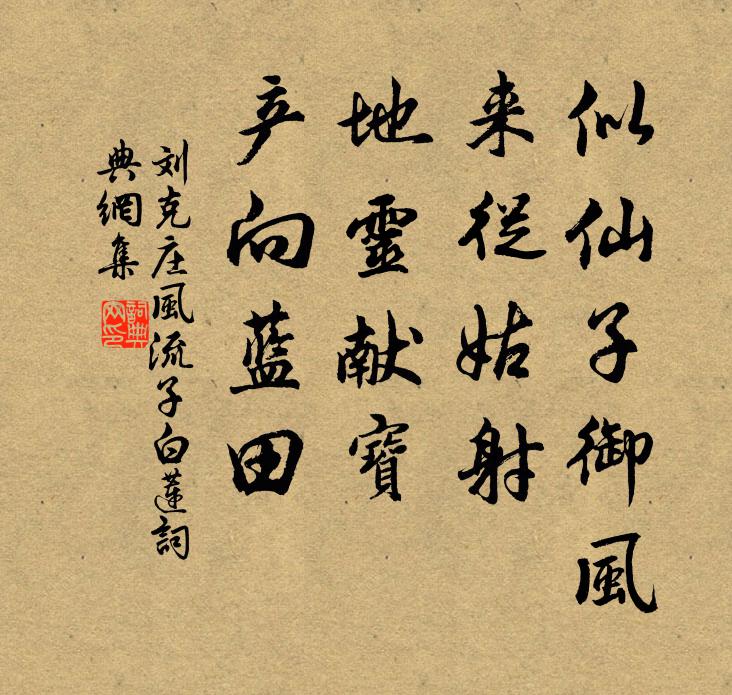 似仙子御風
来從姑射
地靈献寶
产向藍田
刘克庄風流子白蓮詞
典網集
詞典網印